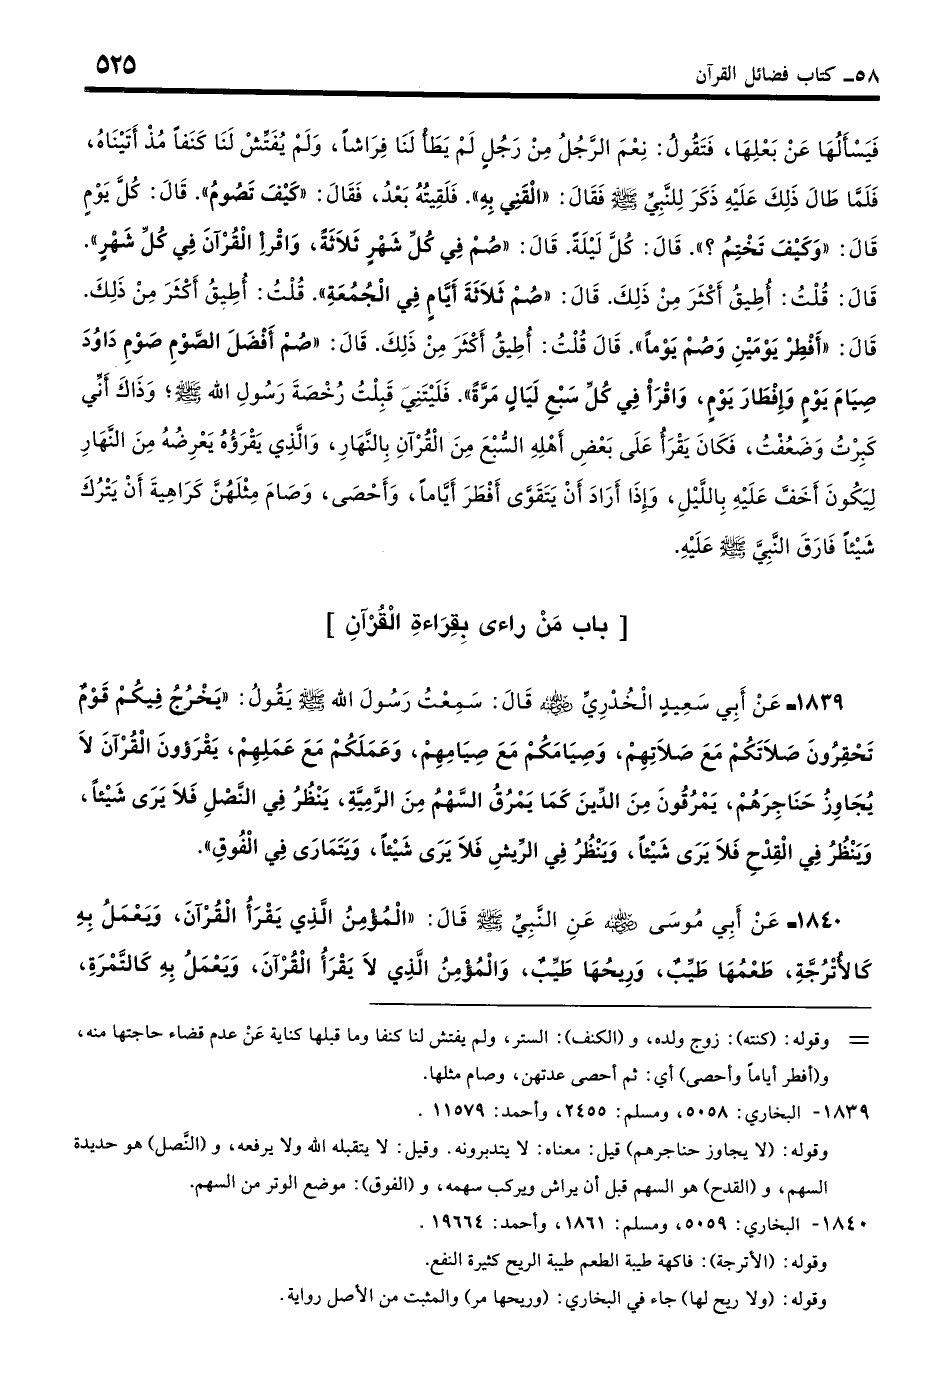 ٥٨ـ كتاب فضائل القرآن ٥٢٥
فَيَسْأَلُهَا عَنْ بَعْلِهَا، فَتَقُولُ: نِعْمَ الرَّجُلُ مِنْ رَجُلٍ لَمْ يَطَأْ لَنَا فِرَاشاً، وَلَمْ يُفَتِّشْ لَنَا كَنَفاً مُذْ أَتَيْنَاهُ،
فَلَمَّا طَالَ ذَلِكَ عَلَيْهِ ذَكَرَ لِلنَّبِيِّ ﷺ فَقَالَ: «الْقَنِي بِهِ». فَلَقِيتُهُ بَعْدُ، فَقَالَ: «كَيْفَ تَصُومُ». قَالَ: كُلَّ يَوْمٍ
قَالَ: «وَكَيْفَ تَخْتِمُ ؟». قَالَ: كُلَّ لَيْلَةً. قَالَ: «صُمْ فِي كُلِّ شَهْرٍ ثَلاَثَةً، وَاقْرَأِ الْقُرْآنَ فِي كُلِّ شَهْرٍ».
قَالَ: قُلْتُ: أُطِيقُ أَكْثَرَ مِنْ ذَلِكَ. قَالَ: «صُمْ ثَلاَثَةَ أَيَّامٍ فِي الْجُمُعَةِ». قُلْتُ: أُطِيقُ أَكْثَرَ مِنْ ذَلِكَ.
قَالَ: «أَفْطِرْ يَوْمَيْنِ وَصُمْ يَوْماً». قَالَ قُلْتُ: أُطِيقُ أَكْثَرَ مِنْ ذَلِكَ. قَالَ: «صُمْ أَفْضَلَ الصَّوْمِ صَوْمِ دَاوُدَ
صِيَامَ يَوْمٍ وَإِفْطَارَ يَوْمٍ، وَاقْرَأْ فِي كُلِّ سَبْعِ لَيَالٍ مَرَّةً». فَلَيْتَنِي قَبِلْتُ رُخْصَةَ رَسُولِ الله ﷺ؛ وَذَاكَ أَنِّي
كَبِرْتُ وَضَعُفْتُ، فَكَانَ يَقْرَأُ عَلَى بَعْضِ أَهْلِهِ السُّبْعَ مِنَ الْقُرْآنِ بِالنَّهَارِ، وَالَّذِي يَقْرَؤُهُ يَعْرِضُهُ مِنَ النَّهَارِ
لِيَكُونَ أَخَفَّ عَلَيْهِ بِاللَّيْلِ، وَإِذَا أَرَادَ أَنْ يَتَقَوَّى أَفْطَرَ أَيَّاماً، وَأَحْصَى، وَصَامَ مِثْلَهُنَّ كَرَاهِيةَ أَنْ يَتْرُكَ
شَيْئاً فَارَقَ النَّبِيَّ ﷺ عَلَيْهِ.
[ باب مَنْ راءى بِقِرَاءةِ الْقُرْآنِ ]
١٨٣٩ـ عَنْ أَبِي سَعِيدٍ الْخُدْرِيِّ رضي الله عنه قَالَ: سَمِعْتُ رَسُولَ الله ﷺ يَقُولُ: «يَخْرُجُ فِيكُمْ قَوْمٌ
تَحْقِرُونَ صَلاَتَكُمْ مَعَ صَلاَتِهِمْ، وَصِيَامَكُمْ مَعَ صِيَامِهِمْ، وَعَمَلَكُمْ مَعَ عَمَلِهِمْ، يَقْرَؤونَ الْقُرْآنَ لاَ
يُجَاوِزُ حَنَاجِرَهُمْ، يَمْرُقُونَ مِنَ الدِّينَ كَمَا يَمْرُقُ السَّهْمُ مِنَ الرَّمِيَّةِ، يَنْظُرُ فِي النَّصْلِ فَلاَ يَرَى شَيْئاً،
وَيَنْظُرُ فِي الْقِدْحِ فَلاَ يَرَى شَيْئاً، وَيَنْظُرُ فِي الرِّيشِ فَلاَ يَرَى شَيْئاً، وَيَتَمَارَى فِي الْفُوقِ».
١٨٤٠ـ عَنْ أَبِي مُوسَى رضي الله عنه عَنِ النَّبِيِّ ﷺ قَالَ: «الْمُؤْمِنُ الَّذِي يَقْرَأُ الْقُرْآنَ، وَيَعْمَلُ بِهِ
كَالأُتْرُجَّةِ، طَعْمُهَا طَيِّبٌ، وَرِيحُهَا طَيِّبٌ، وَالْمُؤْمِنُ الَّذِي لاَ يَقْرَأُ الْقُرْآنَ، وَيَعْمَلُ بِهِ كَالتَّمْرَةِ،
= وقوله: (كنته): زوج ولده، و (الكنف): الستر، ولم يفتش لنا كنفا وما قبلها كناية عَنْ عدم قضاء حاجتها منه،
و(أفطر أياماً وأحصى) أي: ثم أحصى عدتهن، وصام مثلها.
١٨٣٩- البخاري: ٥٠٥٨، ومسلم: ٢٤٥٥، وأحمد: ١١٥٧٩ .
وقوله: (لا يجاوز حناجرهم) قيل: معناه: لا يتدبرونه. وقيل: لا يتقبله الله ولا يرفعه، و (النَّصل) هو حديدة
السهم، و (القدح) هو السهم قبل أن يراش ويركب سهمه، و (الفوق): موضع الوتر من السهم.
١٨٤٠- البخاري: ٥٠٥٩، ومسلم: ١٨٦١، وأحمد: ١٩٦٦٤ .
وقوله: (الأترجة): فاكهة طيبة الطعم طيبة الريح كثيرة النفع.
وقوله: (ولا ريح لها) جاء في البخاري: (وريحها مر) والمثبت من الأصل رواية.